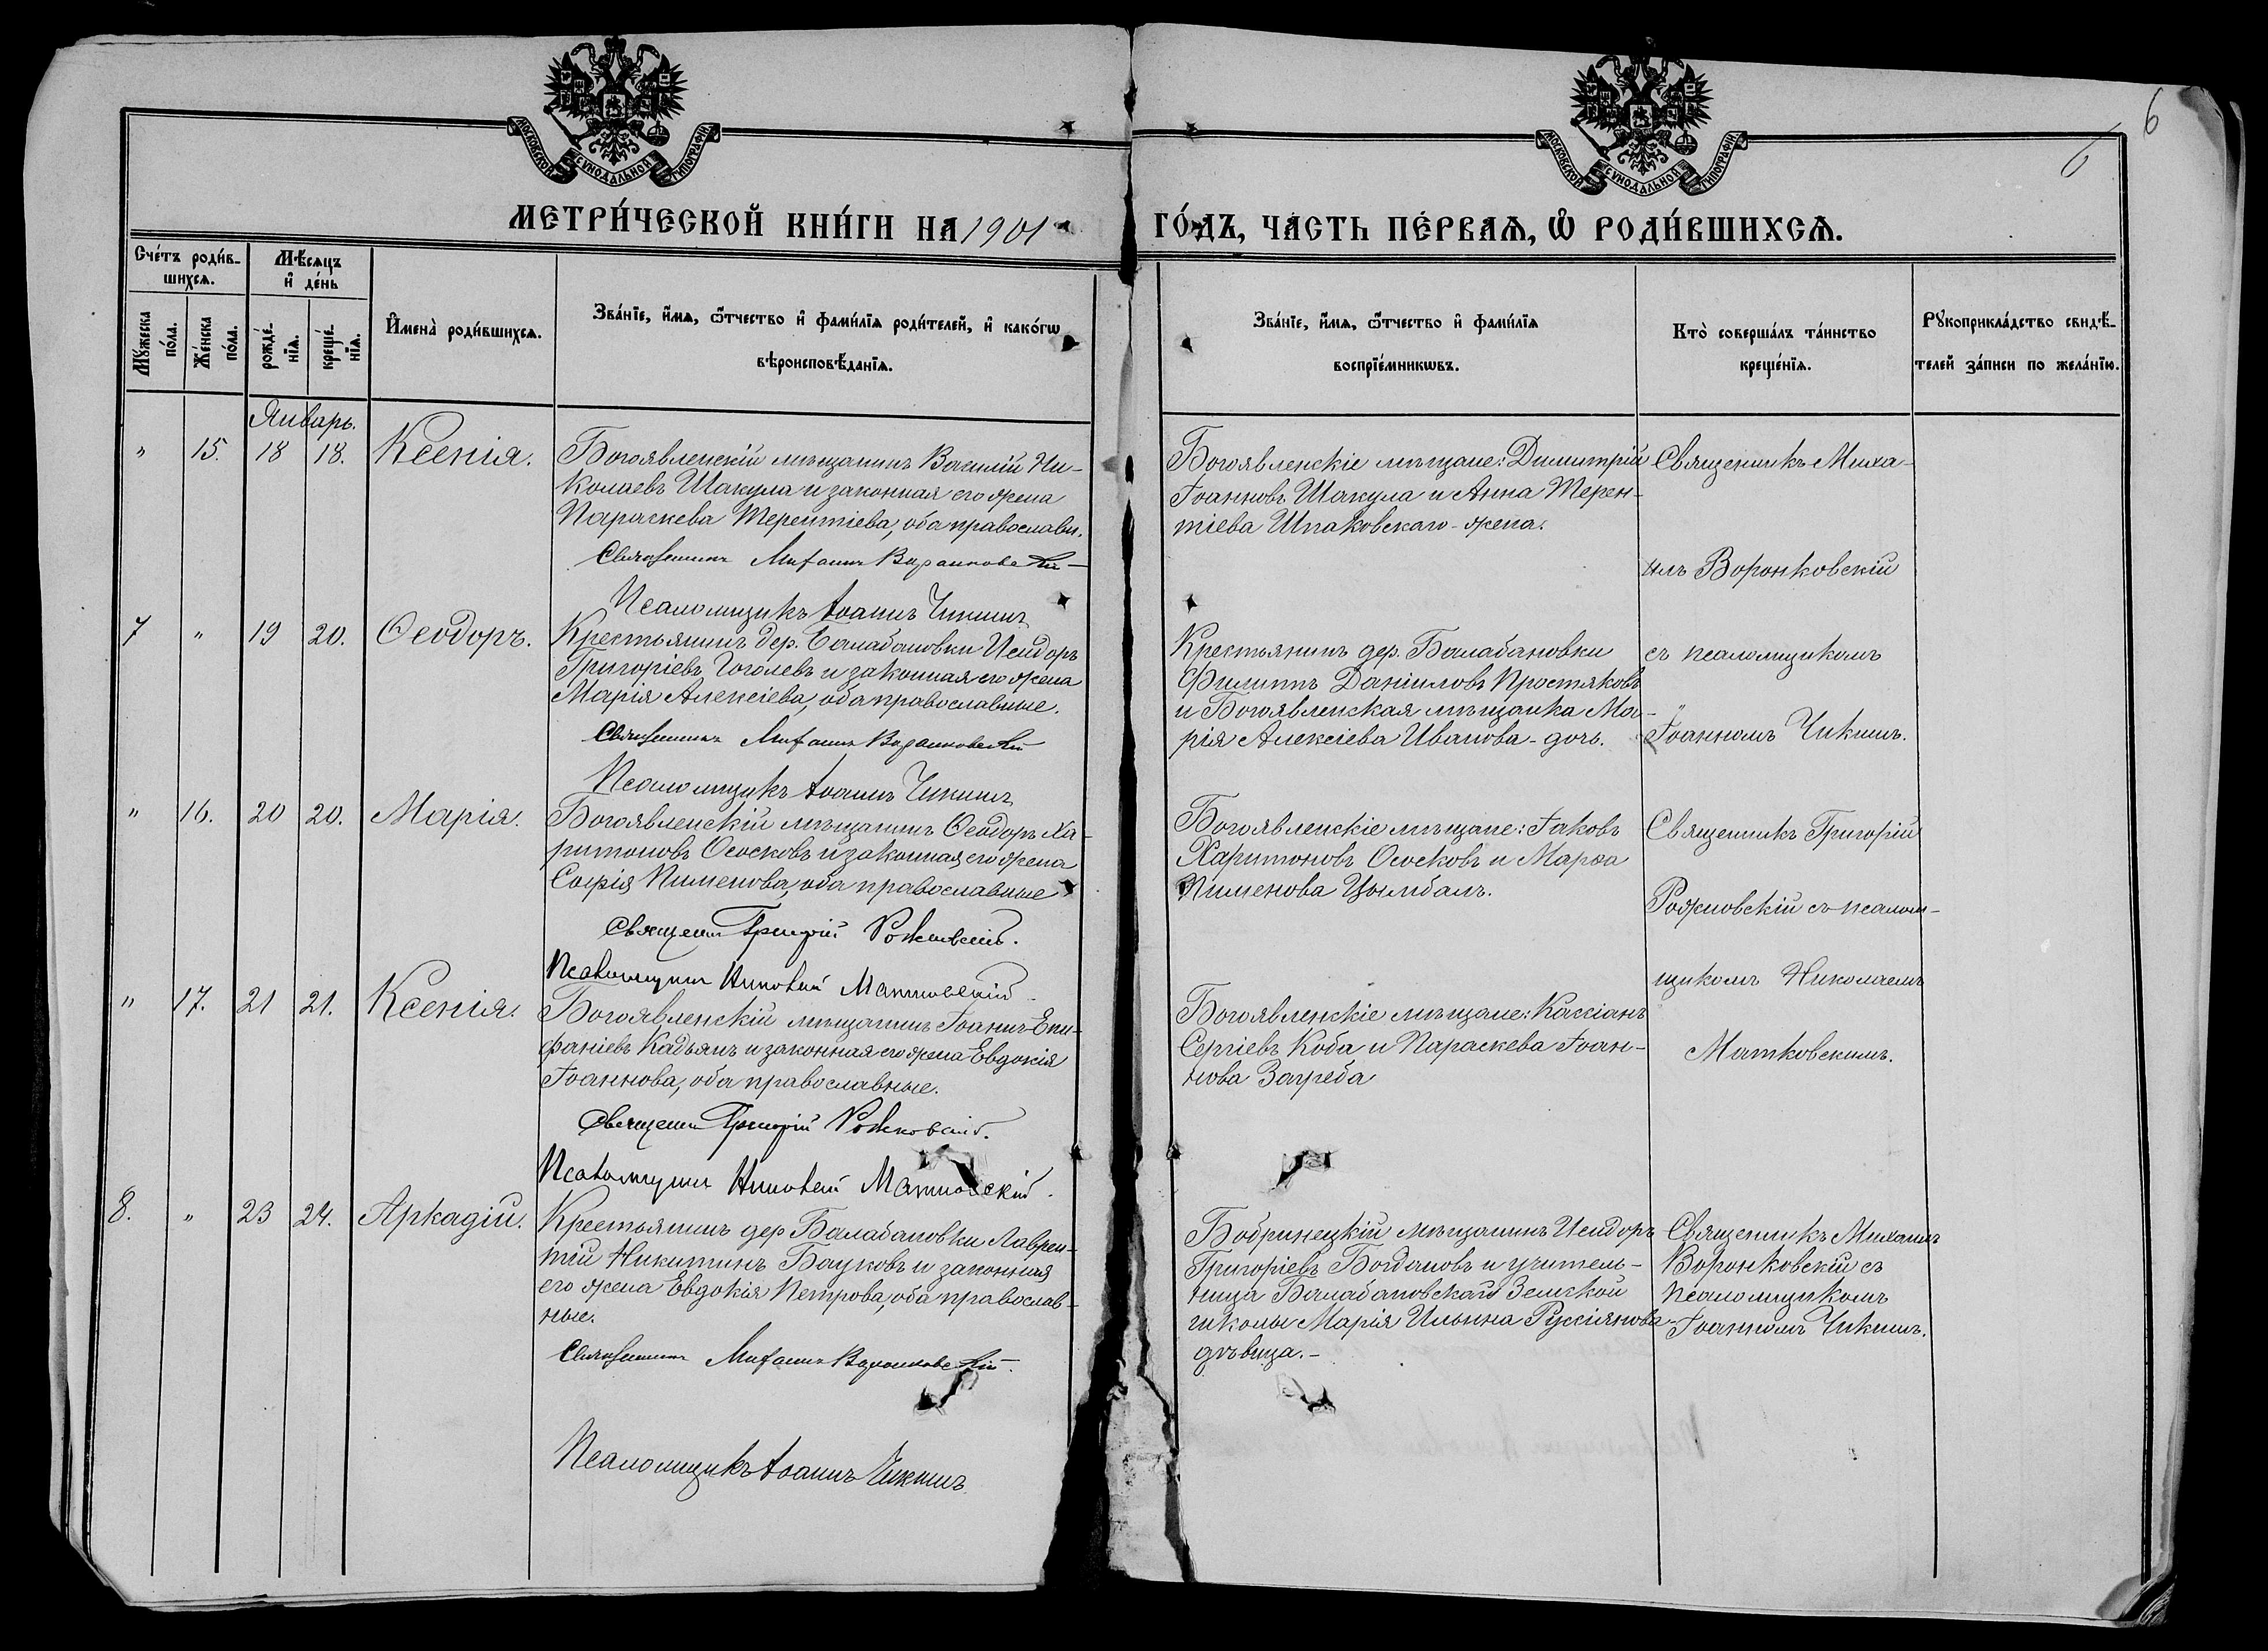 МОСКОВСКОЙ СѴНОДАЛЬНОЙ ТИПОГРАФІИ
МОСКОВСКОЙ СѴНОДАЛЬНОЙ ТИПОГРАФІИ
6
6
МЕТРИ́ЧЕСКОЙ КНИ́ГИ НА 1901
ГО́ДЪ, ЧА́СТЬ ПЕ́РВАѦ, Ѽ РОДИ́ВШИХСѦ.
Сче́тъ роди́в-
шихсѧ.
Мѣ́сѧцъ
и҆ де́нь
Мꙋ́жеска
по́ла.
Же́нска
по́ла.
рожде́-
нїѧ.
креще́-
нїѧ.
И҆мена̀ роди́вшихсѧ.
Зва́нїе, и҆́мѧ, ѻ҆́тчество и҆ фами́лїѧ роди́телей, и҆ како́гѡ
вѣроисповѣ́данїѧ.
Зва́нїе, и҆́мѧ, ѻ҆́тчество и҆ фами́лїѧ
воспрїе́мникѡвъ.
Кто̀ соверша́лъ та́инство
креще́нїѧ.
Рꙋкоприкла́дство свидѣ́-
телей за́писи по жела́нїю.
Январь.
" 15. 18 18. Ксенія.
Богоявленскій мѣщанинъ Василій Ни-
колаевъ Шакула и законная его жена
Параскева Терентіева, оба православн.
Священникъ Михаилъ Воронковскій
Псаломщикъ Іоаннъ Чикишъ
Богоявленскіе мѣщане: Димитрій
Іоанновъ Шакула и Анна Терен-
тіева Шпаковскаго - жена.
Священникъ Миха-
илъ Воронковскій
съ псаломщикомъ
Іоанномъ Чикишъ.
7 " 19 20. Ѳеодоръ.
Крестьянинъ дер. Балабановки Исидоръ
Григоріевъ Гоголевъ и законная его жена
Марія Алексіева, оба православные.
Священникъ Михаилъ Воронковскій
Псаломщикъ Іоаннъ Чикишъ
Крестьянинъ дер. Балабановки
Филиппъ Даніиловъ Простяковъ
и Богоявленская мѣщанка Ма-
рія Алексіева Иванова - дочь.
" 16. 20 20. Марія.
Богоявленскій мѣщанинъ Ѳеодоръ Ха-
ритоновъ Ососковъ и законная его жена
Софія Пименова, оба православные
Священникъ Григорій Рожновскій.
Псаломщикъ Николай Матковскій
Богоявленскіе мѣщане: Іаковъ
Харитоновъ Ососковъ и Марѳа
Пименова Цымбалъ.
Священникъ Григорій
Рожновскій съ псалом-
щикомъ Николаемъ
Матковскимъ.
" 17. 21 21. Ксенія.
Богоявленскій мѣщанинъ Іоаннъ Епи-
фаніевъ Кадьянъ и законная его жена Евдокія
Іоаннова, оба православные.
Священникъ Григорій Рожновскій.
Псаломщикъ Николай Матковскій.
Богоявленскіе мѣщане: Кассіанъ
Сергіевъ Коба и Параскева Іоан-
нова Загреба
8. " 23 24. Аркадій.
Крестьянинъ дер Балабановки Лаврен-
тій Никитинъ Бауковъ и законная
его жена Евдокія Петрова, оба православ-
ные.
Священникъ Михаилъ Воронковскій.
Псаломщикъ Іоаннъ Чикишъ
Бобринецкій мѣщанинъ Исидоръ
Григоріевъ Богдановъ и учитель-
ница Балабановской Земской
школы Марія Ильина Руссіянова
дѣвица.-
Священникъ Михаилъ
Воронковскій съ
псаломщикомъ
Іоанномъ Чикишъ.